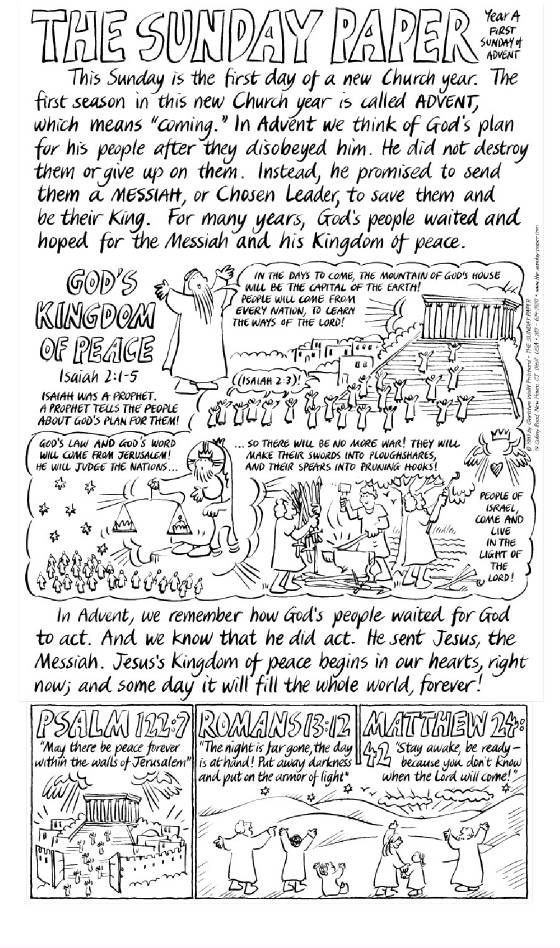 THE SUNDAY PAPER
Year A
FIRST
SUNDAY of
ADVENT
This Sunday is the first day of a new Church year. The
first season in this new Church year is called ADVENT,
which means "coming." In Advent we think of God's plan
for his people after they disobeyed him. He did not destroy
them or give up on them. Instead, he promised to send
them a MESSIAH, or Chosen Leader, to save them and
be their King. For many years, God's people waited and
hoped for the Messiah and his Kingdom of peace.
GOD'S
KINGDOM
OF PEACE
Isaiah 2:1-5
ISAIAH WAS A PROPHET.
A PROPHET TELLS THE PEOPLE
ABOUT GOD'S PLAN FOR THEM!
IN THE DAYS TO COME, THE MOUNTAIN OF GOD'S HOUSE
WILL BE THE CAPITAL OF THE EARTH!
PEOPLE WILL COME FROM
EVERY NATION, TO LEARN
THE WAYS OF THE LORD!
(ISAIAH 2:3)!
GOD'S LAW AND GOD'S WORD
WILL COME FROM JERUSALEM!
HE WILL JUDGE THE NATIONS...
...SO THERE WILL BE NO MORE WAR! THEY WILL
MAKE THEIR SWORDS INTO PLOUGHSHARES,
AND THEIR SPEARS INTO PRUNING HOOKS!
PEOPLE OF
ISRAEL,
COME AND
LIVE
IN THE
LIGHT OF
THE
LORD!
In Advent, we remember how God's people waited for God
to act. And we know that he did act. He sent Jesus, the
Messiah. Jesus's Kingdom of peace begins in our hearts, right
now; and some day it will fill the whole world, forever!
PSALM 122:7
"May there be peace forever
within the walls of Jerusalem"
ROMANS 13:12
"The night is far gone, the day
is at hand! Put away darkness
and put on the armor of light"
MATTHEW 24:
42 "Stay awake, be ready –
because you don't know
when the Lord will come!"